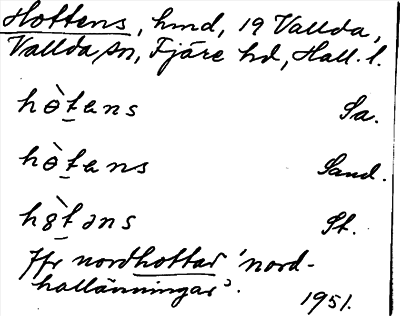 Hottens, hmd, 19 Vallda,
Vallda sn, Fjäre hd, Hall. l.
hɵ̀t̠ens Sa.
hɵ̀t̠ens Sand.
hȣ̀t̠əns St.
Jfr nordhottar 'nord-
hallänningar'.
1951.